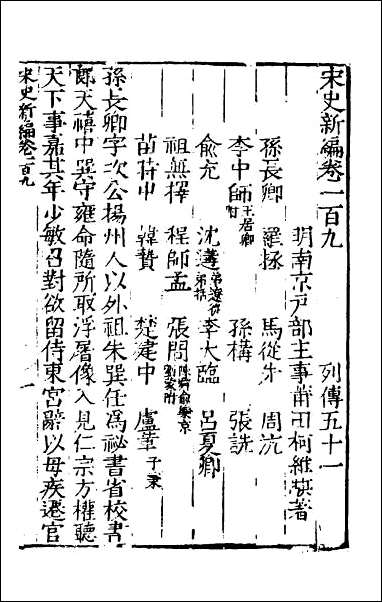 宋史新編卷一百九 列傳五十一
明南京戶部主事莆田柯維騏著
孫長卿 羅拯 馬從先 周沆
李中師 王居卿 孫構 張詵
俞充 沈遘弟遼從弟括 李大臨 呂夏卿
祖無擇 程師孟 張問陳舜俞樂京劉蒙附
苗時中 韓贄 楚建中 盧革子秉
孫長卿字次公揚州人以外祖朱巽任爲祕書省校書
郎天禧中巽守雍命隨所取浮屠像入見仁宗方權聽
天下事嘉其年少敏占對欲留侍東宮辭以母疾遷官
宋史新編卷一百九 一